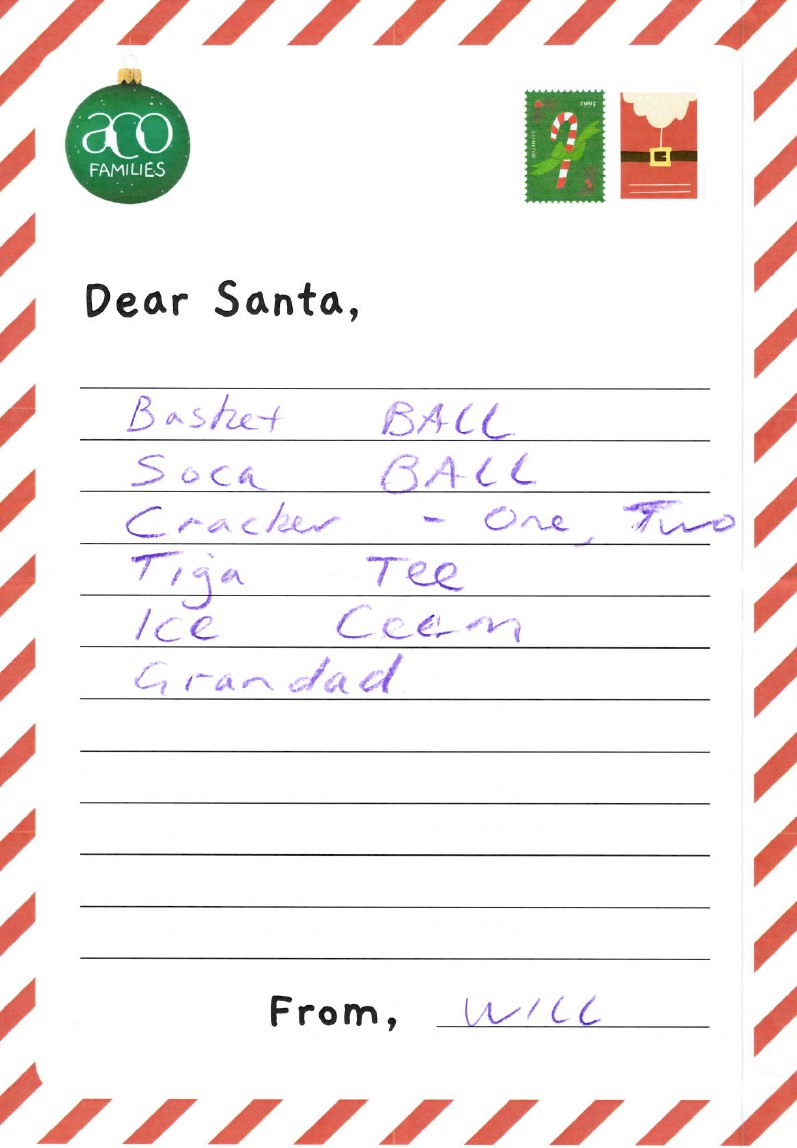 aco
FAMILIES
1995
Dear Santa,
Basket BALL
Soca BALL
Cracker - One, Two
Tiga Tee
Ice Ceem
Grandad
From, WILL